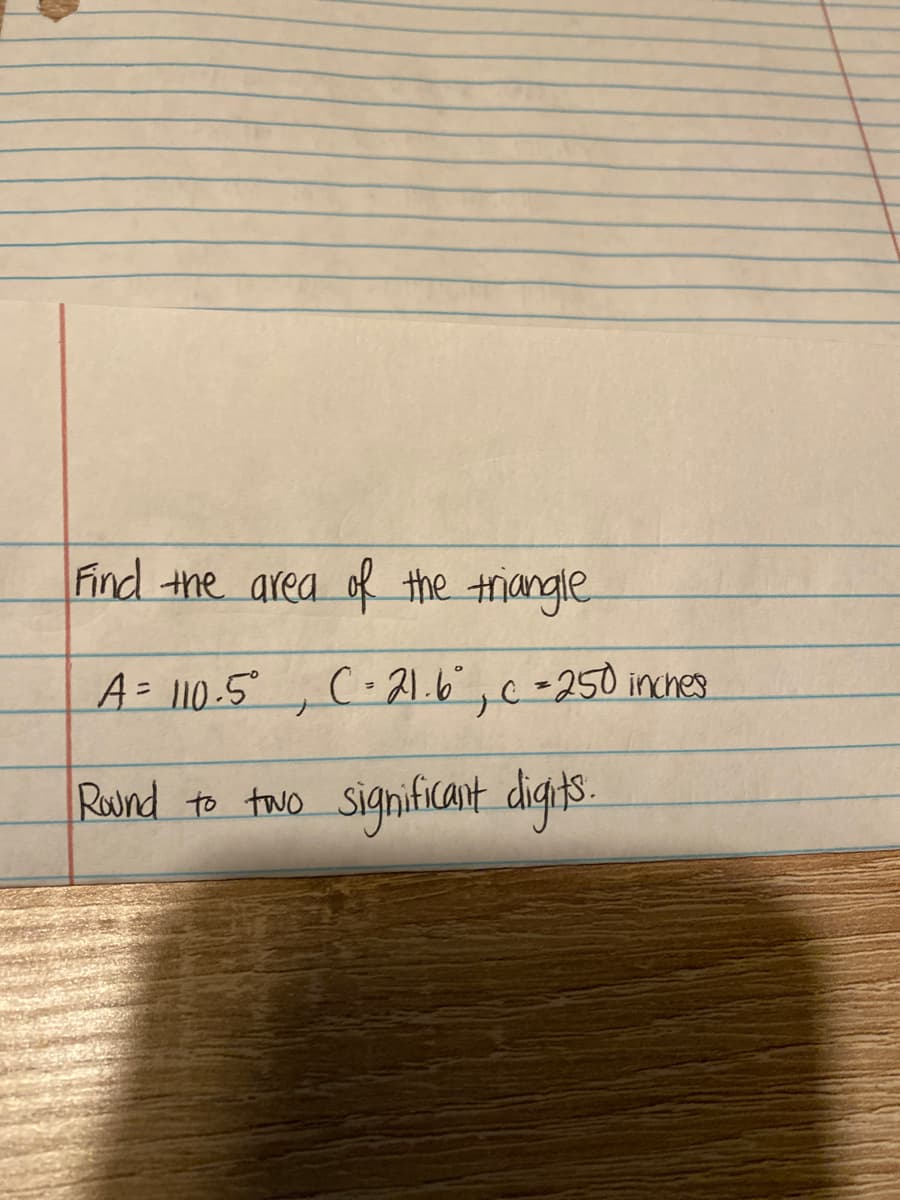 Find the area of the triangle
A = 110.5° , C = 21.6° , c = 250 inches
Round to two significant digits.